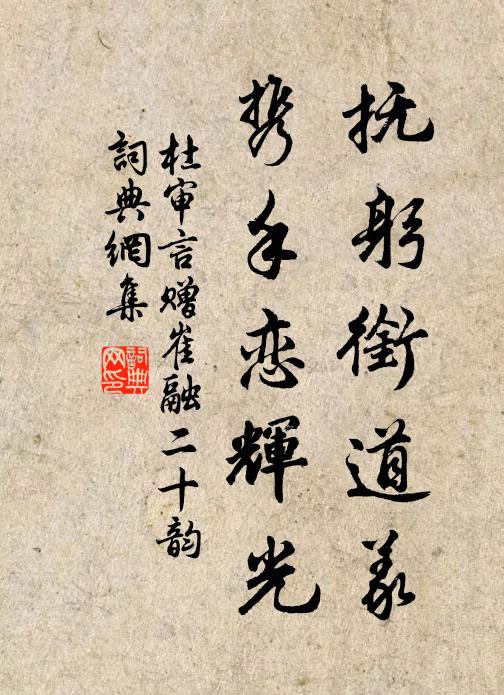 抚躬衔道义
携手恋輝光
杜审言赠崔融二十韵
詞典網集
詞典网印